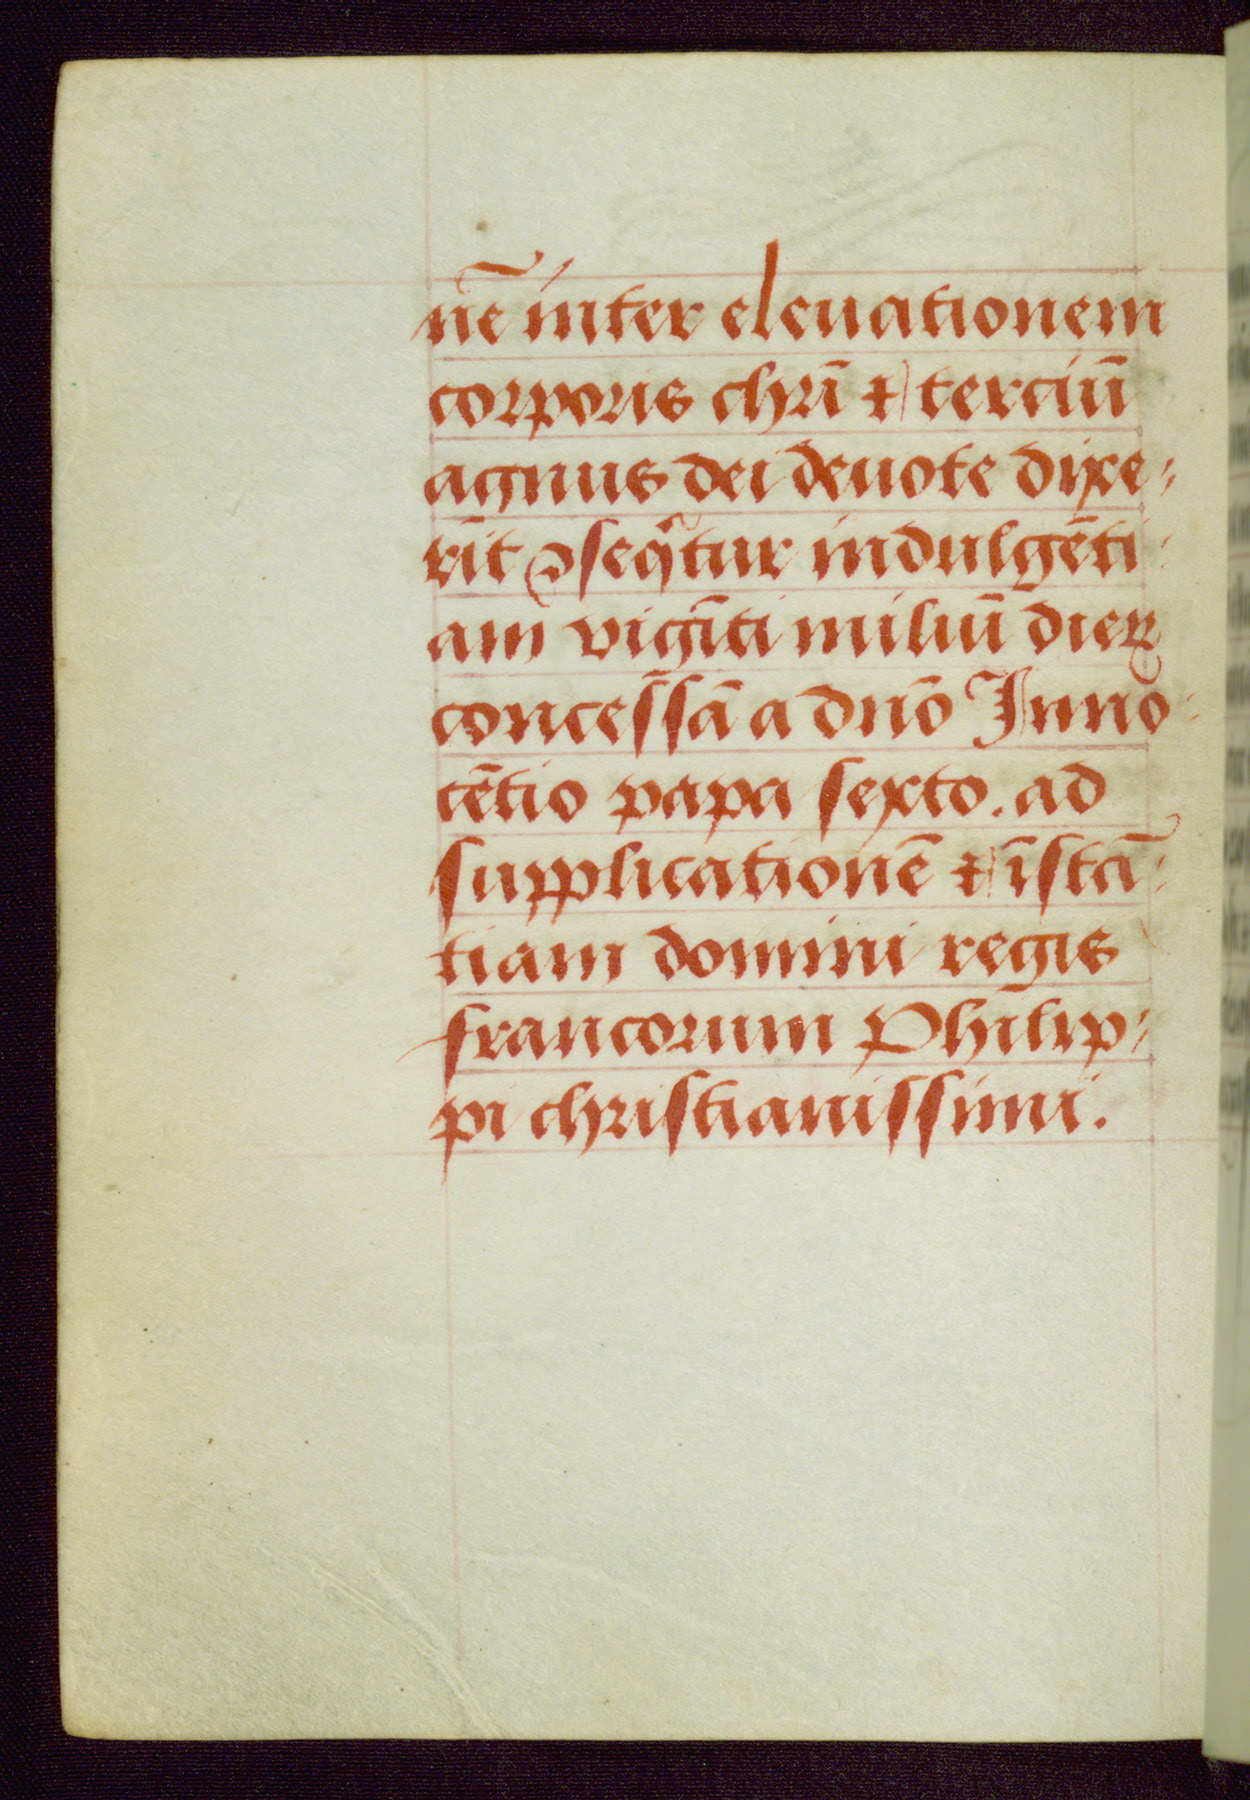 nē inter eleuationem
corporis chri̅ ⁊ terciū
agnus dei deuote dixe-
rit ꝯseqͥtur indulgēti-
am vigīti miliū dieꝝ
concessā a dn̄o Inno-
cētio papa sexto. ad
supplicationē ⁊ īstā-
tiam domini regis
francorum Philip-
pi christianissimi.